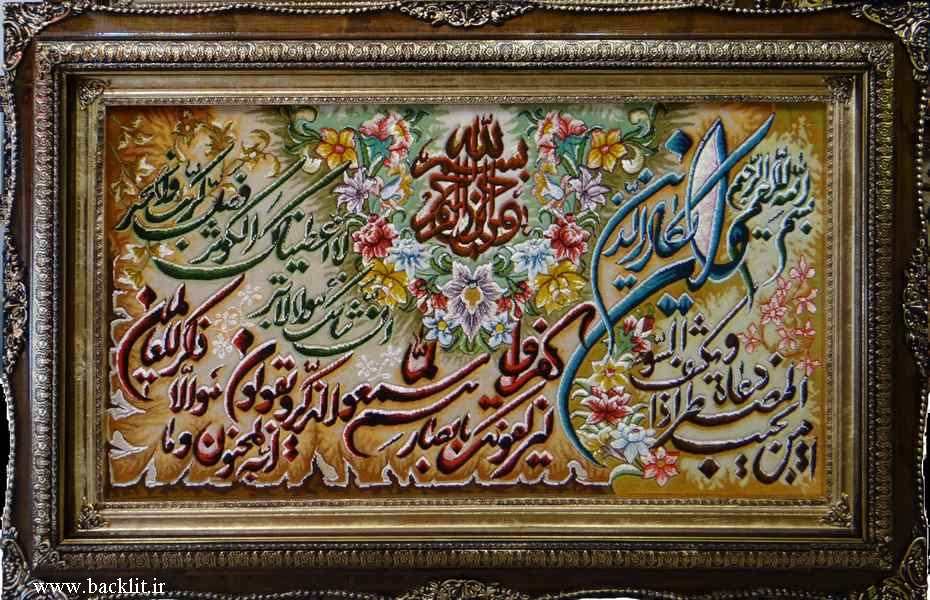 بسم الله الرحمن الرحیم
بسم الله الرحمن الرحیم
وان یکاد الذین
کفروا
لیزلقونک بابصارهم
لما
سمعوا الذکر ویقولون
انه لمجنون وما
هو الا
ذکر للعالمین
انا اعطیناک الکوثر
فصل لربک وانحر
ان شانئک هو الابتر
امن یجیب
المضطر اذا
دعاه
ویکشف السوء
www.backlit.ir